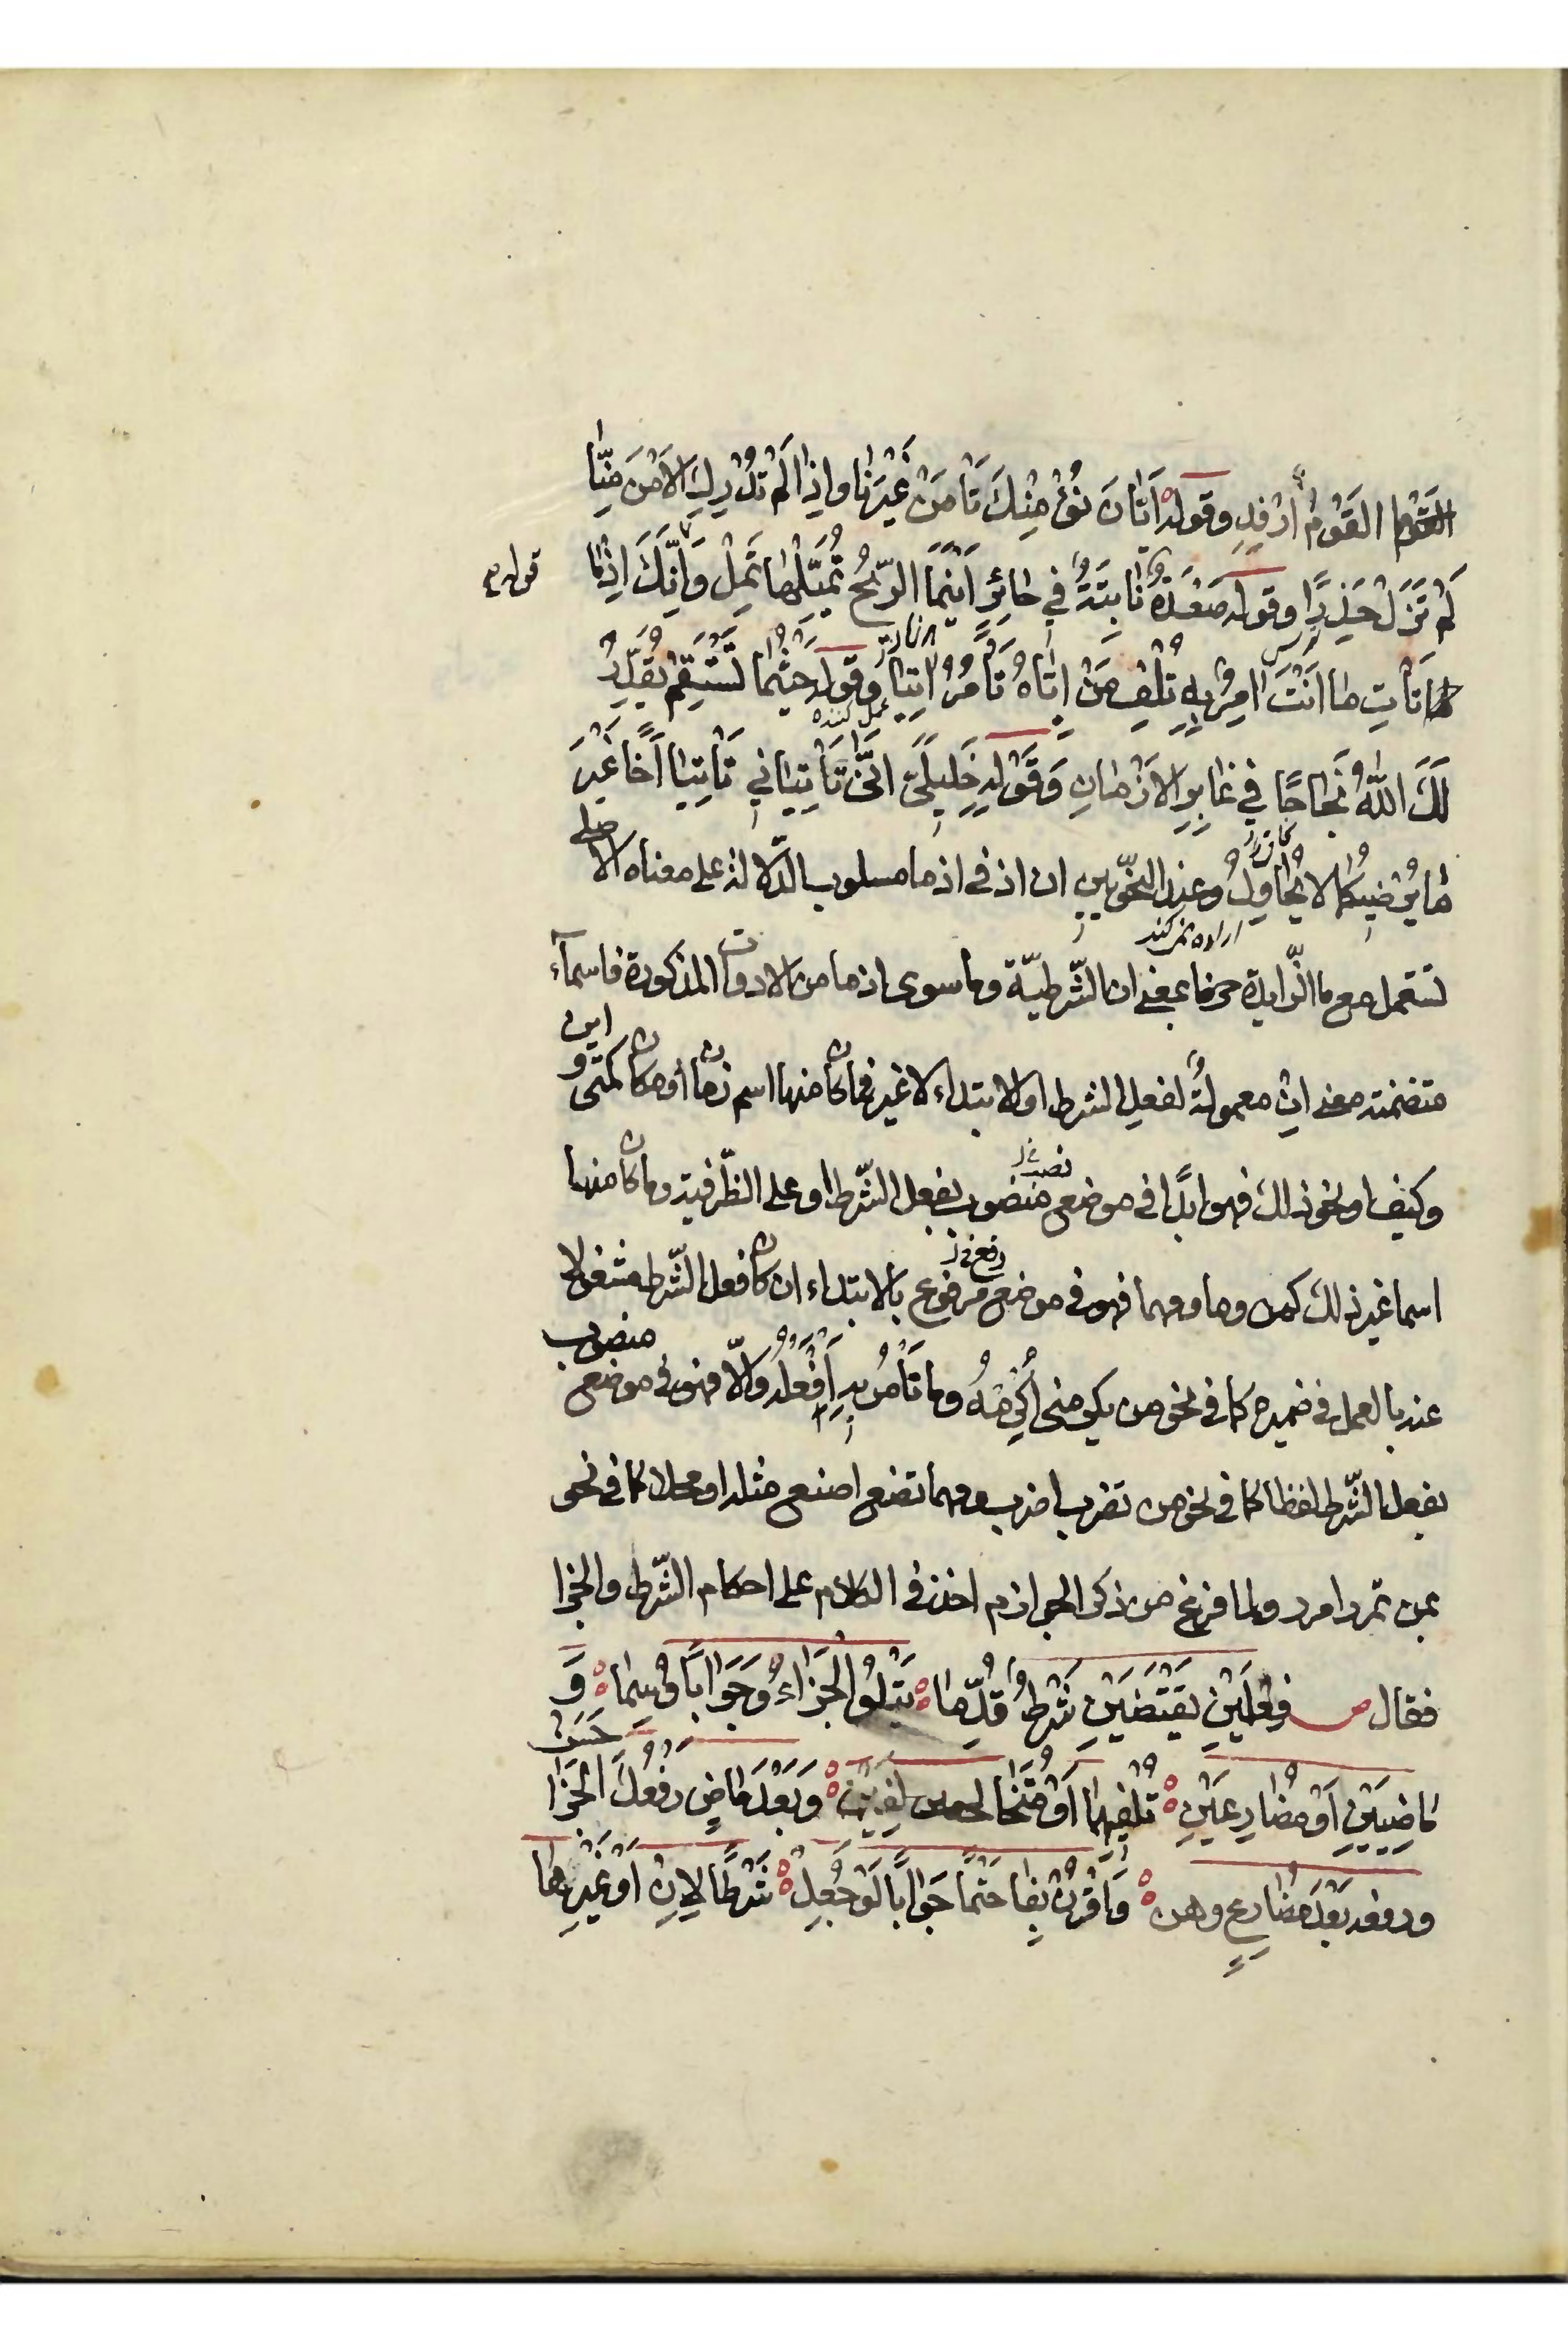 القوم القَوْمُ اَرْفِدِ وقوله اَيّانَ نُؤْمِنْكَ تَأْمَنْ غَيْرَنٰا واِذٰا لَمْ تُدْرِكِ الاَمْنَ مِنّٰا
لَمْ تَزَلْ حَذِرًا وقوله صَعْدَةٌ نٰابِتَةٌ فِي حٰائِرٍ اَيْنَمَا الرّيحُ تُمَيّلْهٰا تَمِلْ وَاِنَّكَ اِذْمٰا
قوله
تَأْتِ مٰا اَنْتَ اٰمِرٌ بِهِ تُلْفِ مَنْ اِيّاهُ تَأْمُرُ اٰتِيًا وقوله حَيْثُمٰا تَسْتَقِمْ يُقَدِّرْ
عمل كننده
لَكَ اللّٰهُ نَجٰاحًا فِي غٰابِرِ الاَزْمٰانِ وَقَوْلِهِ خَلِيلَيَّ اَنّىٰ تَأْتِيٰانِي تَأْتِيٰا اَخًا غَيْرَ
مٰا يُرْضِيكُمٰا لا يُحٰاوِلُ وعند النحّويين ان اذ في اذ ما مسلوب الدّلالة على معناه الاصلى
اراده نمى كند
تستعمل مع ما الزّايدة حرفا بمعنى ان الشّرطيّة وما سوى اذ ما من الادوات المذكورة فاسمآء
متضمنة معنى اِنْ معمولةٌ لفعل الشرط او الابتداء لا غير فما كان منها اسم زمان او مكان كمتى و اين
وكيف او نحو ذلك فهو ابدًا في موضع منصوب بفعل الشّرط او على الظّرفية وما كان منها
نصب خ
اسما غير ذلك كمن وما ومهما فهو في موضع مرفوع بالابتداء ان كان فعل الشّرط مشغولا
رفع خ
عنه بالعمل في ضميره كما في نحو من يكرمنى اُكْرِمْهُ وما تَأْمُرْ بِهِ اَفْعَلْهُ والّا فهو في موضع منصوب
بفعل الشّرط لفظا كما في نحو من تضرب اضرب ومهما تصنع اصنع مثله او محلا كما في نحو
بمن تمرر امرر ولما فرغ من ذكر الجوازم اخذ في الكلام على احكام الشّرط والجزا
فقال ص فِعْلَيْنِ يَقْتَضِينَ شَرْطٌ قُدِّمٰا يَتْلُوا الْجَزٰاءُ وَجَوٰابًا وُسِمٰا وَ
مٰاضِيَيْنِ اَوْ مُضٰارِعَيْنِ تُلْفِيهِمٰا اَوْ مُتَخٰالِفَيْنِ وَبَعْدَ مٰاضٍ رَفْعُكَ الْجَزٰا حَسَنْ
ورفعه بَعْدَ مُضٰارِعٍ وهن وَاقْرُنْ بِفٰا حَتْمًا جَوٰابًا لَوْ جُعِلْ شَرْطًا لِاِنْ اَوْ غَيْرِهٰا